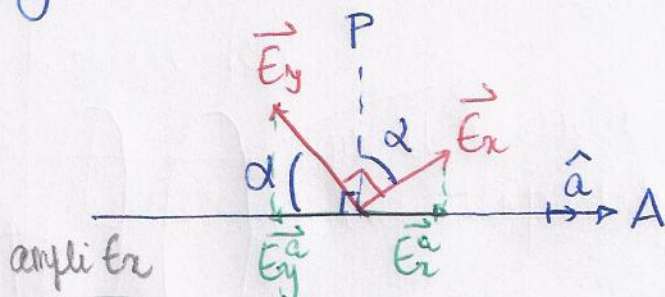 P
E⃗y
α
E⃗x
α
â
A
ampli Ex
E⃗yᵃ
E⃗xᵃ